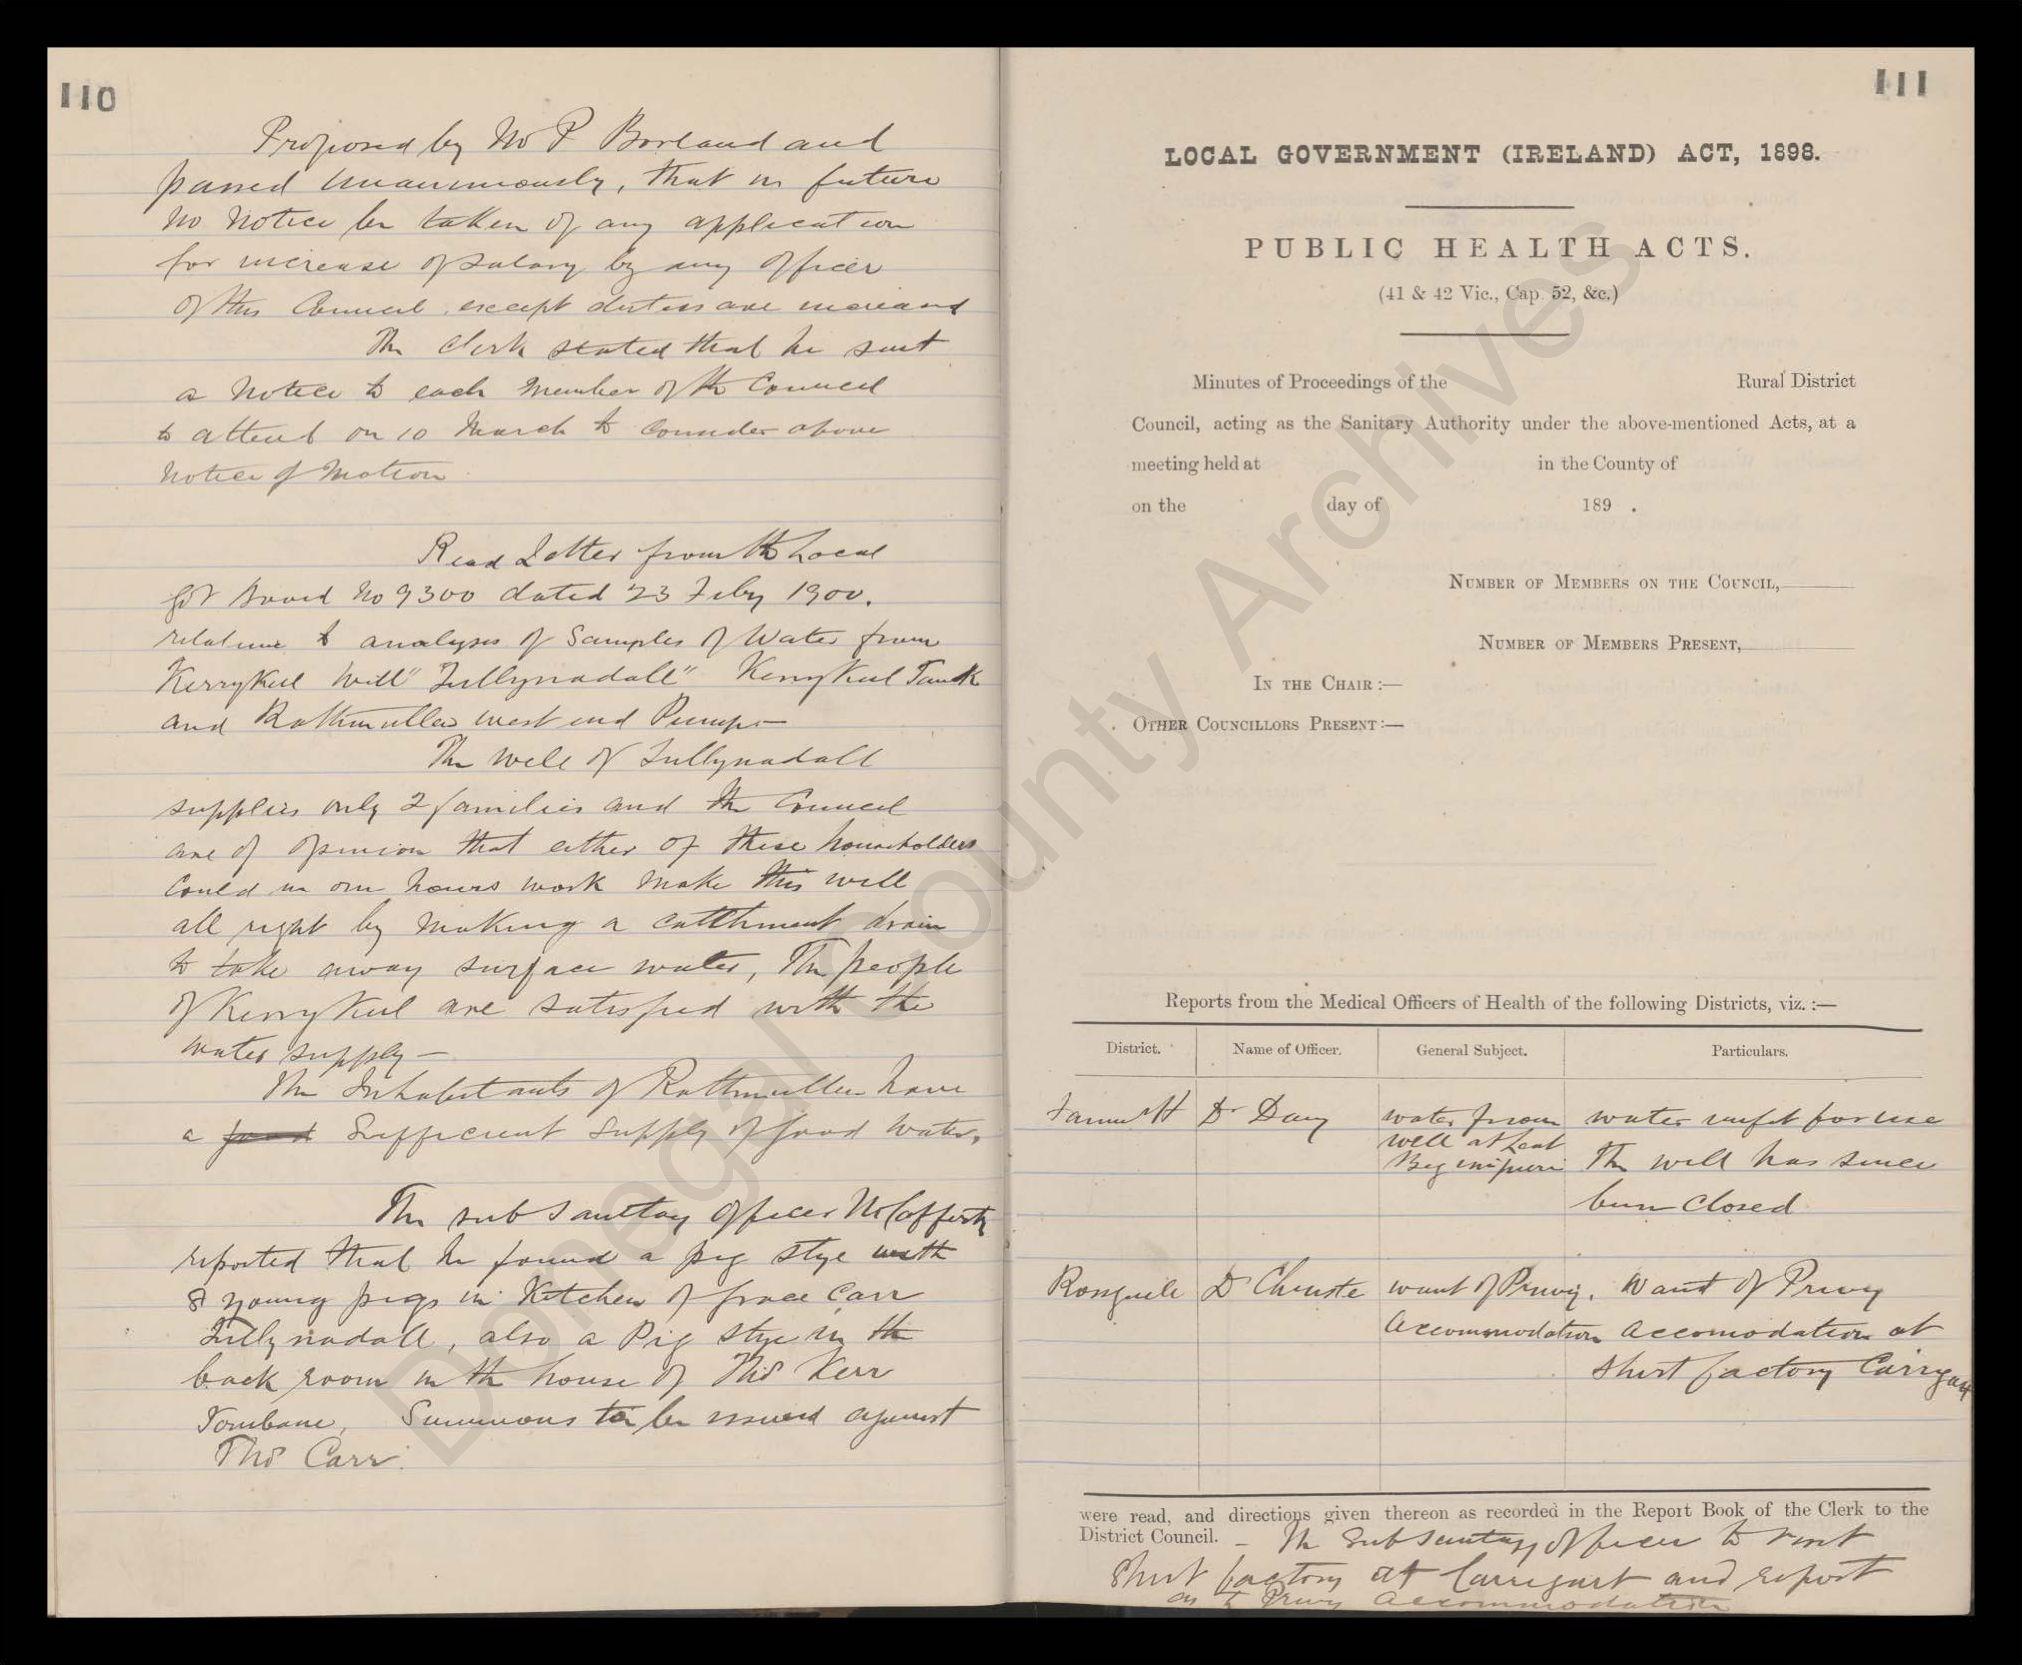 110
Proposed by Mr P Borland and
passed unanimously, that in future
no notice be taken of any application
for increase of salary by any officer
of this Council except duties are increased
The Clerk stated that he sent
a Notice to each Member of the Council
to attend on 10 March to Consider above
Notice of Motion
Read Letter from the Local
Gov Board No 9300 dated 23 Feby 1900.
relative to analysis of Samples of Water from
Kerrykeel Well "Tullynadall" Kerrykeel Tank
and Rathmullen west end Pump—
The well of Tullynadall
supplies only 2 families and the Council
are of opinion that either of these householders
Could in one hours work make this well
all right by making a catchment drain
to take away surface water, The people
of Kerrykeel are satisfied with the
water supply—
The Inhabitants of Rathmullen have
a good Sufficient Supply of good Water.
The sub Sanitary Officer McCafferty
reported that he found a pig stye with
8 young pigs in Kitchen of Grace Carr
Tullynadall, also a Pig stye in the
back room in the house of Thos Kerr
Tombane, Summons to be issued against
Thos Carr.
111
LOCAL GOVERNMENT (IRELAND) ACT, 1898.
PUBLIC HEALTH ACTS.
(41 & 42 Vic., Cap. 52, &c.)
Minutes of Proceedings of the Rural District
Council, acting as the Sanitary Authority under the above-mentioned Acts, at a
meeting held at in the County of
on the day of 189 .
NUMBER OF MEMBERS ON THE COUNCIL,
NUMBER OF MEMBERS PRESENT,
IN THE CHAIR :—
OTHER COUNCILLORS PRESENT :—
Reports from the Medical Officers of Health of the following Districts, viz. :—
District. Name of Officer. General Subject. Particulars.
Fannett Dr water from water unfit for use
well at Leat
Beg impure The well has since
been Closed
Rosguill Dr Christie want of Privy. Want of Privy
Accommodation accomodation at
Shirt factory Carrigart
were read, and directions given thereon as recorded in the Report Book of the Clerk to the
District Council. – The Sub Sanitary Officer to visit
Shirt factory at Carrigart and report
as to Privy Accommodation
Donegal County Archives